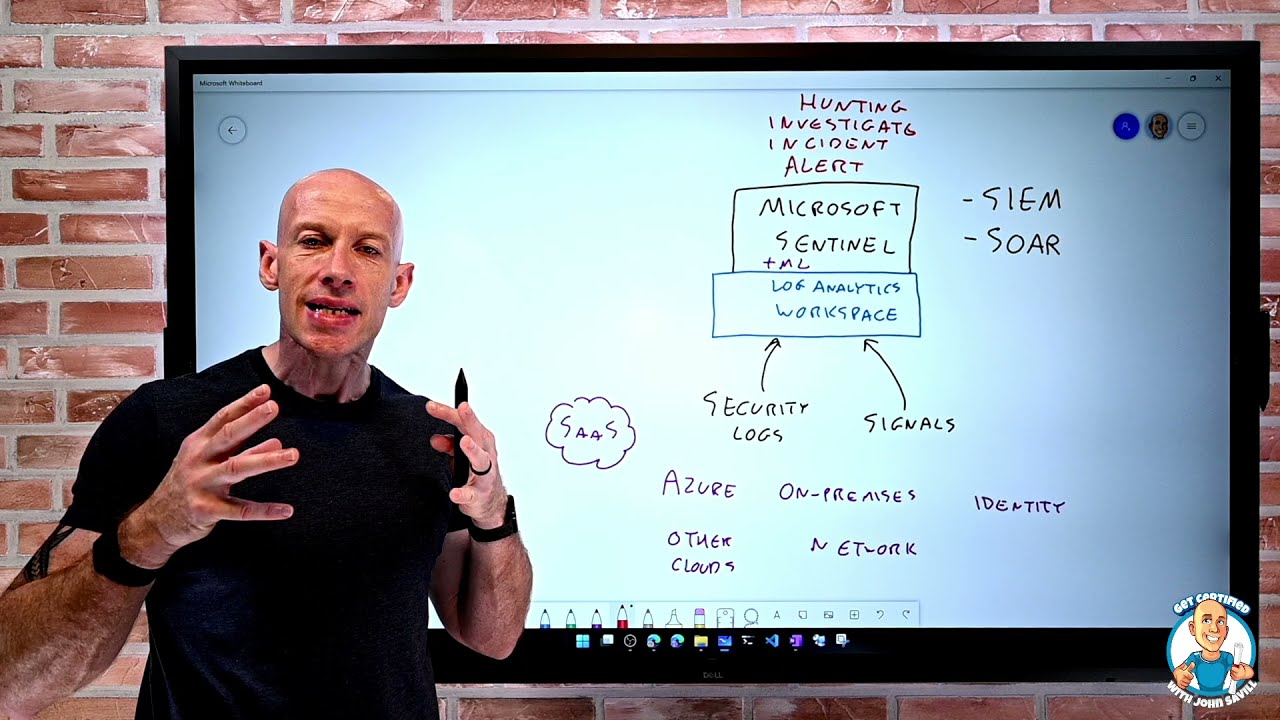 Microsoft Whiteboard
HUNTING
INVESTIGATE
INCIDENT
ALERT
MICROSOFT
SENTINEL
+ML
LOG ANALYTICS
WORKSPACE
- SIEM
- SOAR
SECURITY
LOGS
SIGNALS
SAAS
AZURE
ON-PREMISES
IDENTITY
OTHER
CLOUDS
NETWORK
DELL
GET CERTIFIED
WITH JOHN SAVILL